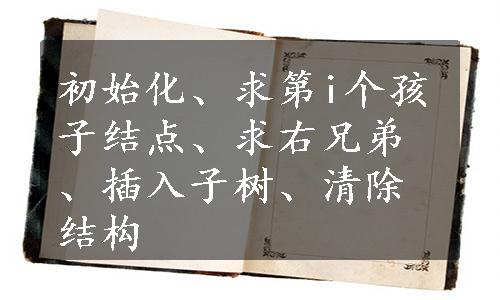 初始化、求第i个孩
子结点、求右兄弟
、插入子树、清除
结构